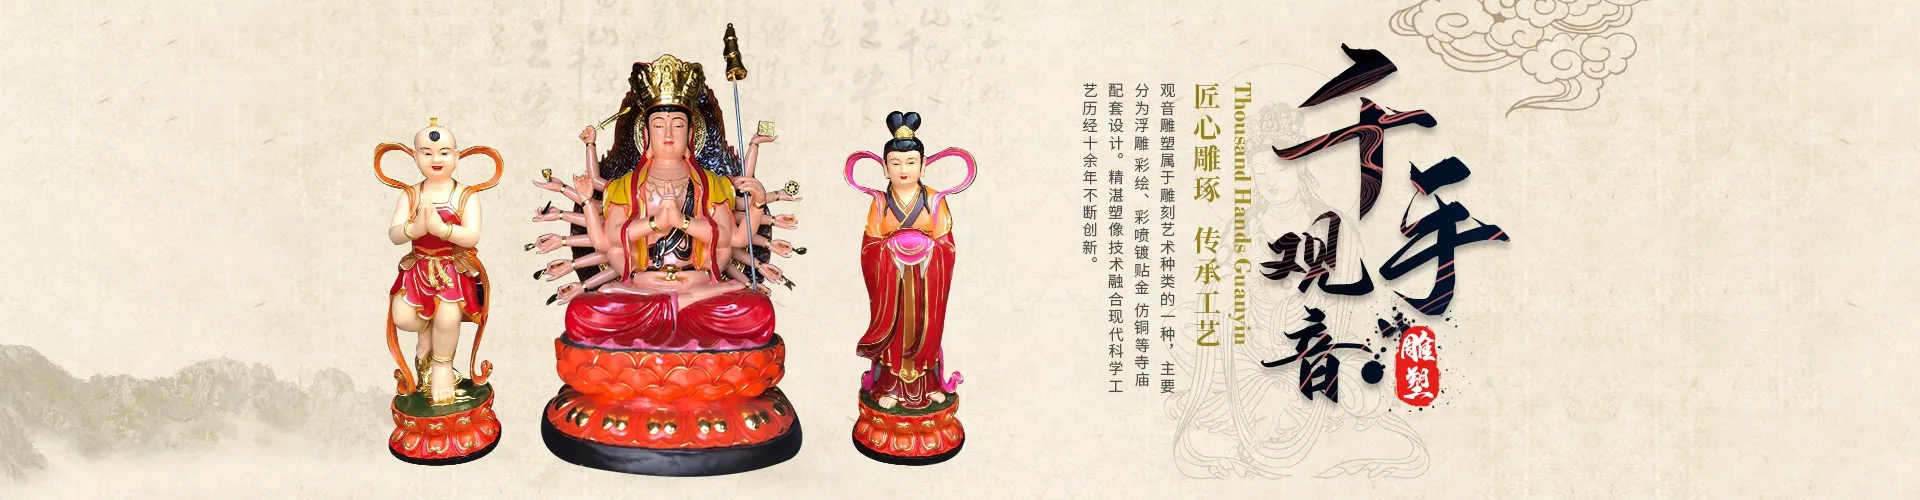 千手
观音
雕塑
Thousand Hands Guanyin
匠心雕琢 传承工艺
观音雕塑属于雕刻艺术种类的一种，主要
分为浮雕 彩绘、彩喷镀贴金 仿铜等寺庙
配套设计。精湛塑像技术融合现代科学工
艺历经十余年不断创新。